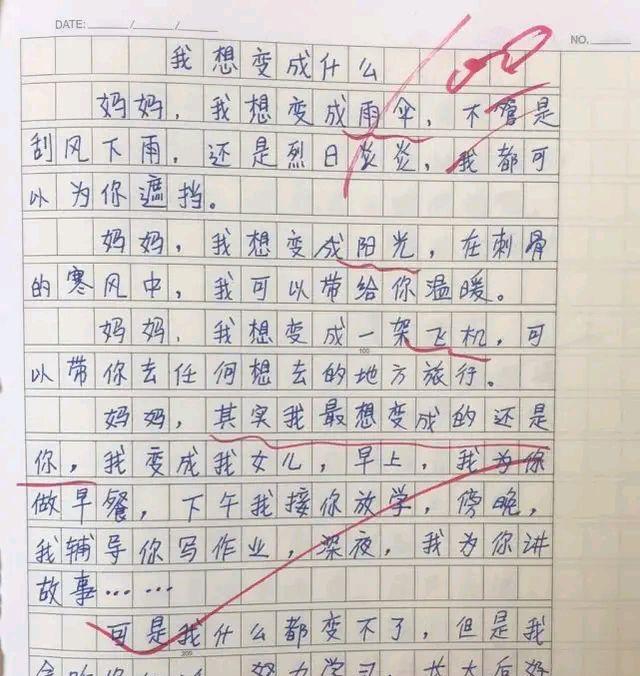 DATE: / /
NO.
100
我想变成什么
妈妈，我想变成雨伞，不管是
刮风下雨，还是烈日炎炎，我都可
以为你遮挡。
妈妈，我想变成阳光，在刺骨
的寒风中，我可以带给你温暖。
妈妈，我想变成一架飞机，可
100
以带你去任何想去的地方旅行。
妈妈，其实我最想变成的还是
你，我变成我女儿，早上，我为你
做早餐，下午我接你放学，傍晚，
我辅导你写作业，深夜，我为你讲
故事……
可是我什么都变不了，但是我
200
努力学习，长大后好